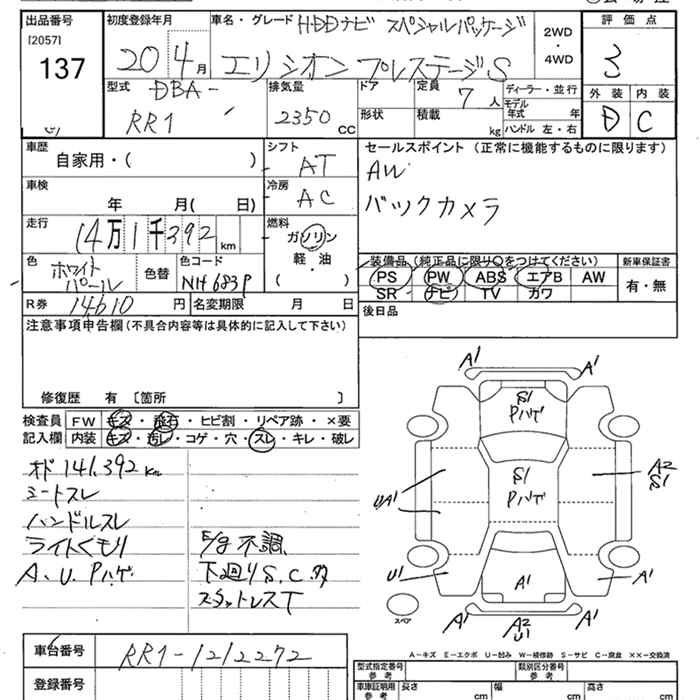 出品番号 初度登録年月 車名・グレード HDDナビ スペシャルパッケージ 2WD・4WD 評価点
[2057]
137 20年4月 エリシオン プレステージS 3
型式 DBA-RR1 排気量 2350CC ドア 定員 7人 ディーラー・並行 外装 内装
形状 積載 kg モデル年式 年 ハンドル 左・右 D C
車歴 シフト セールスポイント (正常に機能するものに限ります)
自家用・( ) AT AW
車検 冷房 バックカメラ
年 月( 日) AC
走行 燃料
14万1千392km ガソリン
色 色替 色コード 軽・油 装備品 (純正品に限り○をつけてください) 新車保証書
ホワイトパール NH683P ( ) PS PW ABS エアB AW 有・無
SR ナビ TV カワ
R券 14610円 名変期限 月 日 後日品
注意事項申告欄 (不具合内容等は具体的に記入して下さい)
修復歴 有 〔箇所 〕
検査員 FW キズ・飛石・ヒビ割・リペア跡・×要
記入欄 内装 キズ・汚レ・コゲ・穴・スレ・キレ・破レ
オド 141,392km
シートスレ
ハンドルスレ
ライトくもり E/g不調
A、U、Pハゲ 下廻りS、C、多
スタットレスT
A1 A1
S1
Pハゲ
S1
Pハゲ
A2
S1
UA1
U1 A1
A1 A2 A1
U1
スペア
A-キズ E-エクボ U-凹み W-補修跡 S-サビ C-腐食 ××-交換済
車台番号 RR1-1212272 型式指定番号 参考 類別区分番号 参考
登録番号 車庫証明用 参考 長さ cm 幅 cm 高さ cm